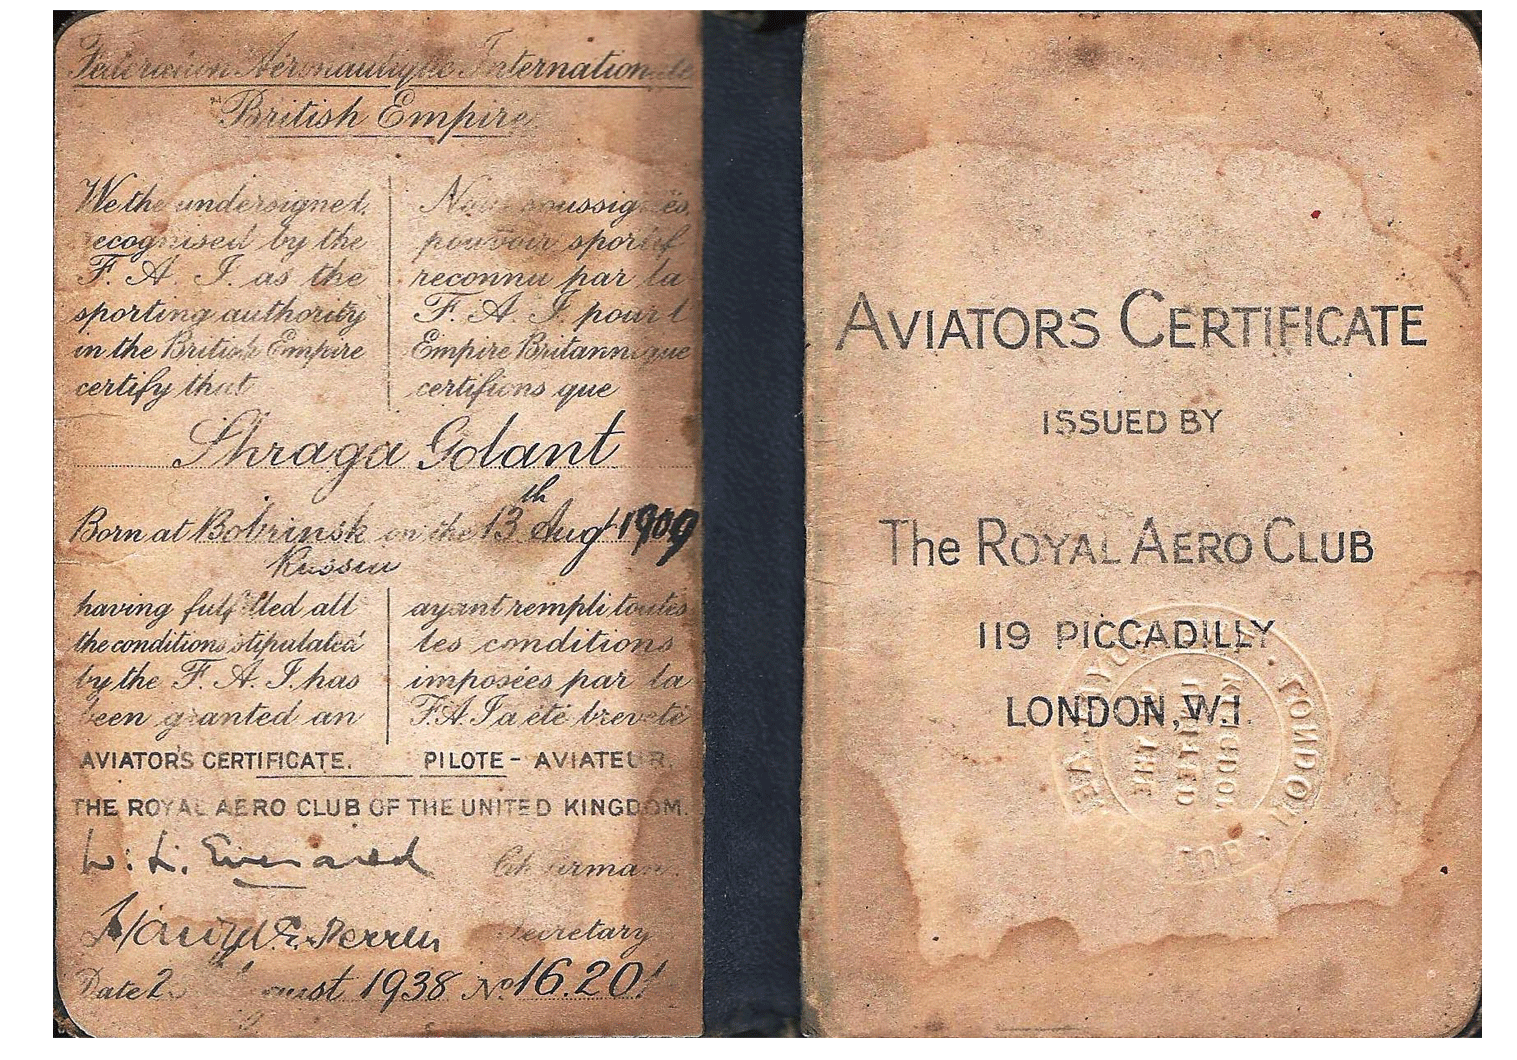 Fédération Aéronautique Internationale
British Empire
We the undersigned,
recognised by the
F. A. I. as the
sporting authority
in the British Empire
certify that
Nous soussignés,
pouvoir sportif
reconnu par la
F. A. I pour l
Empire Britannique
certifions que
Shraga Golant
Born at Bobrinsk on the 13th Aug 1909
Russia
having fulfilled all
the conditions stipulated
by the F. A. I. has
been granted an
ayant rempli toutes
les conditions
imposées par la
F A I a été breveté
AVIATOR'S CERTIFICATE.
PILOTE - AVIATEUR.
THE ROYAL AERO CLUB OF THE UNITED KINGDOM.
W. L. Everard Chairman.
Harold E. Perrin Secretary
Date 1938 No 16.20
AVIATORS CERTIFICATE
ISSUED BY
The ROYAL AERO CLUB
119 PICCADILLY
LONDON, W.1.